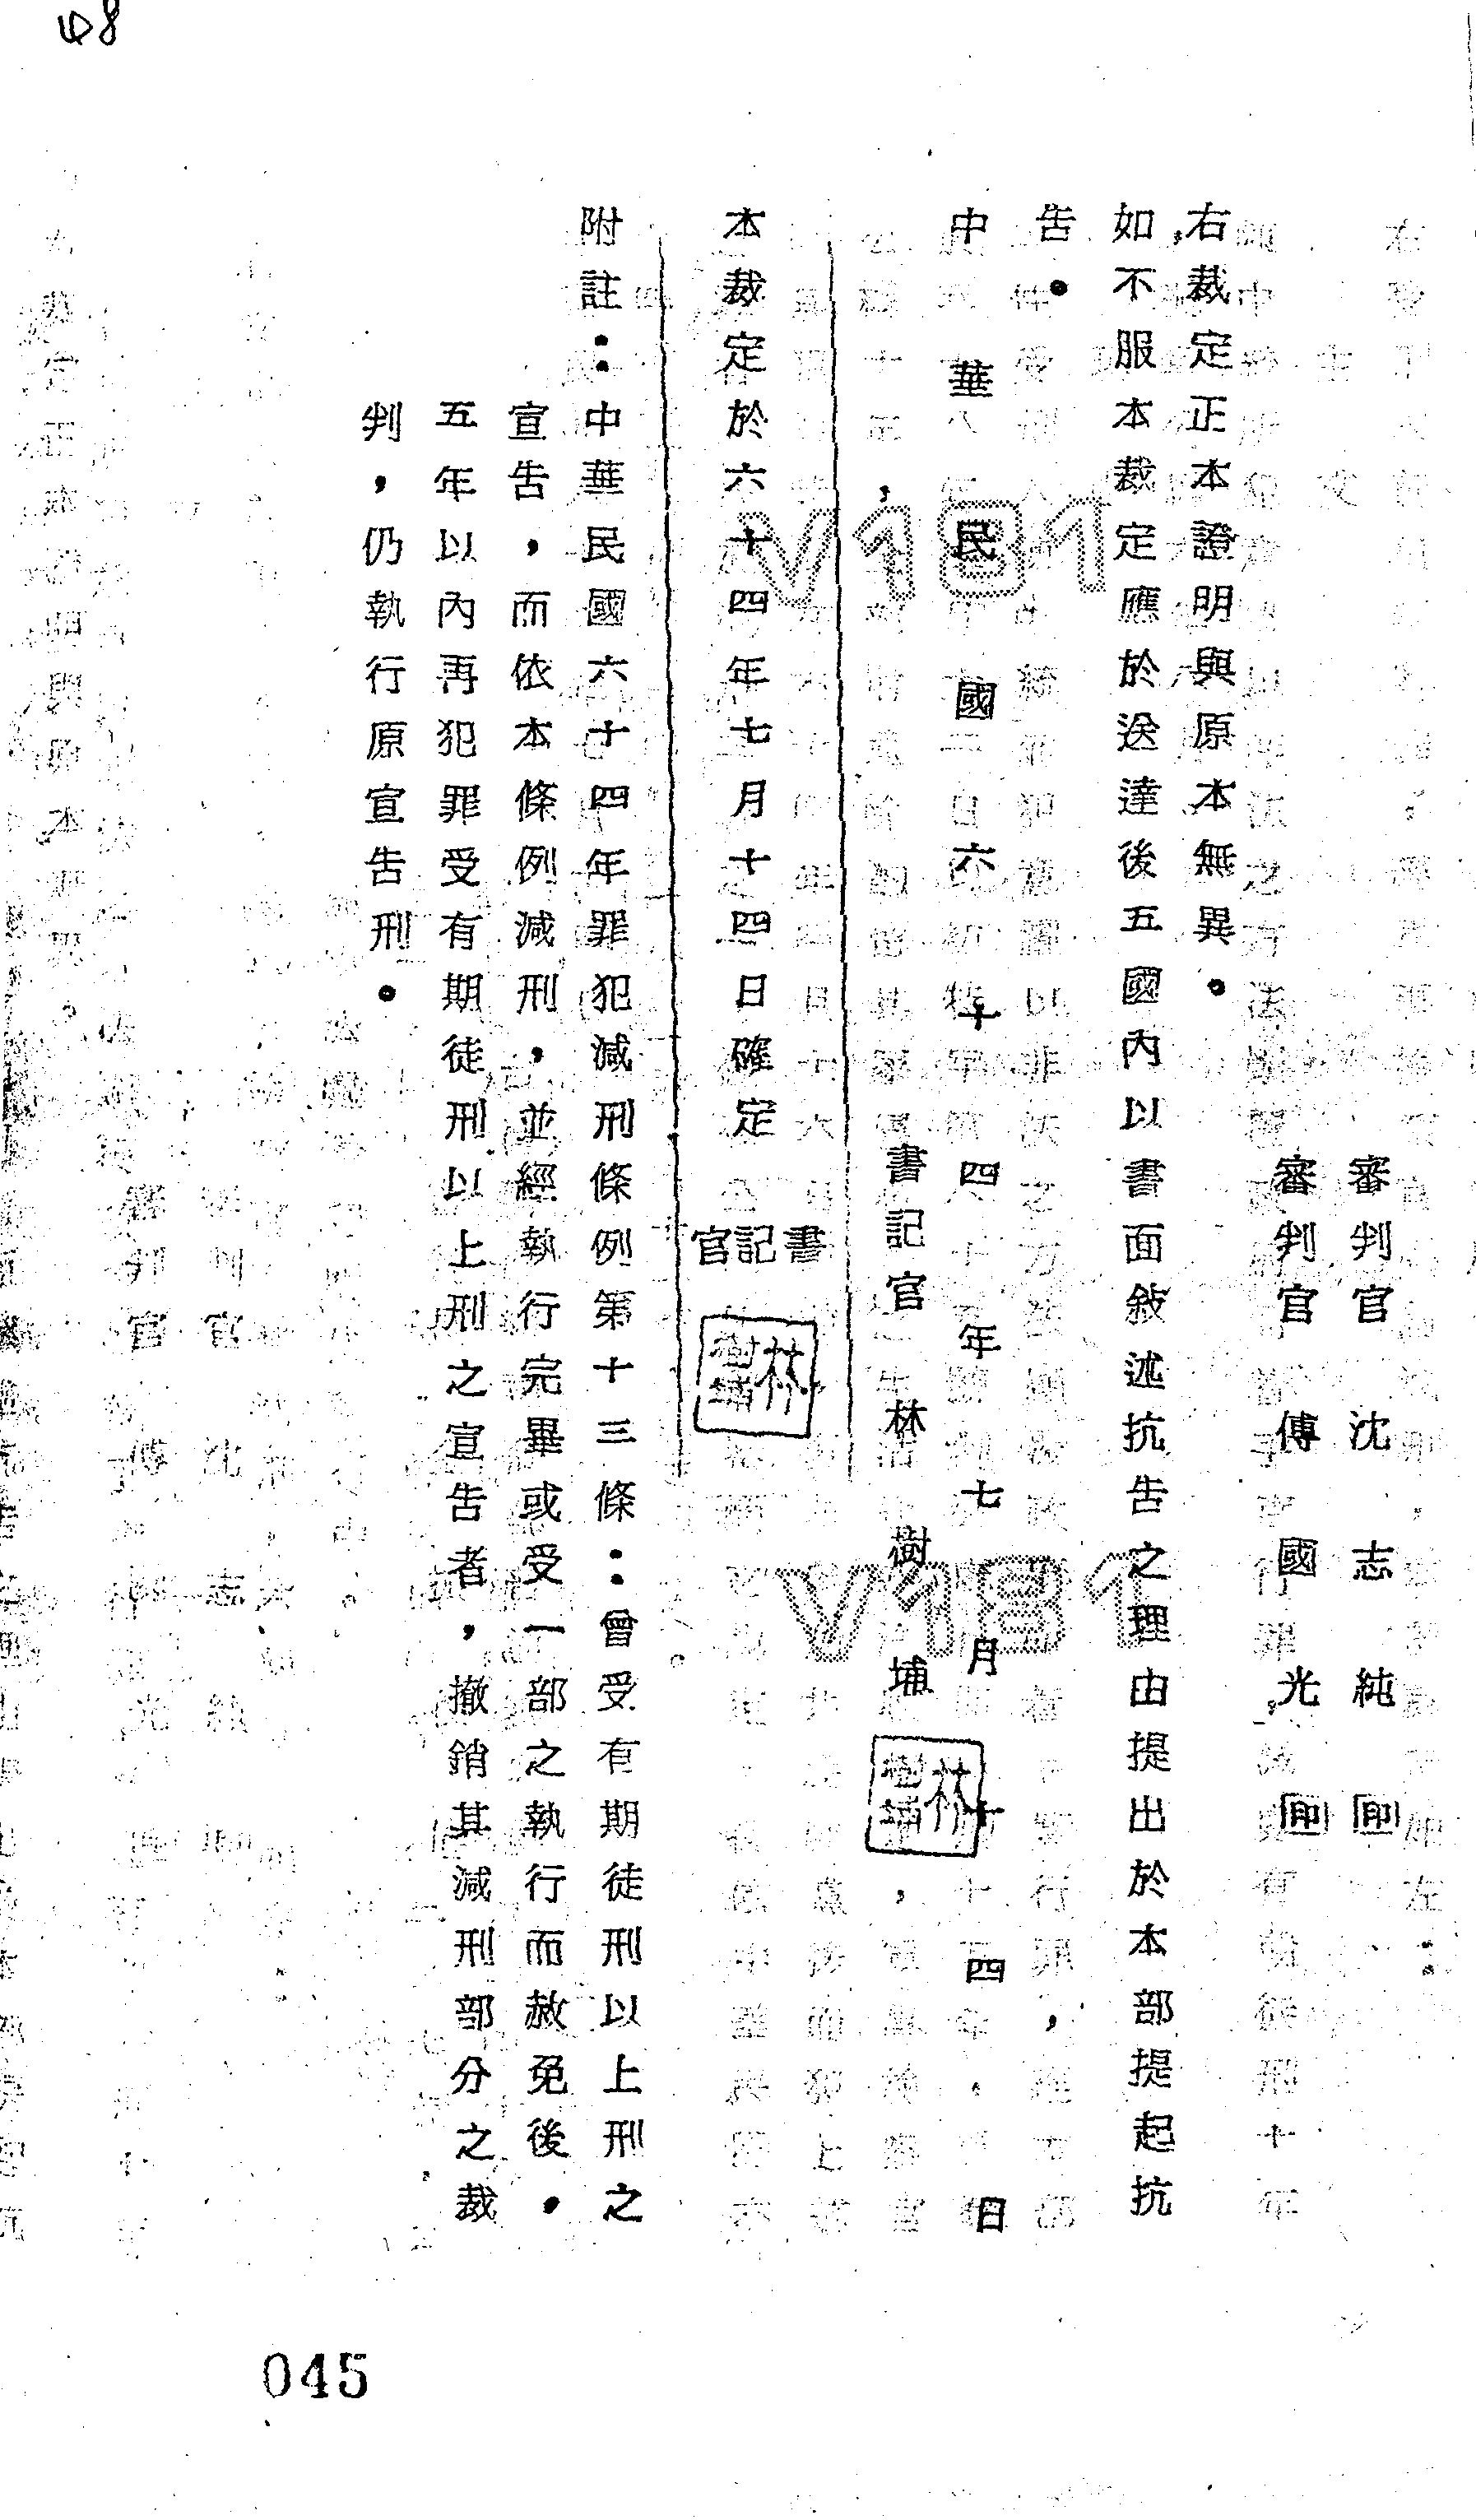 48
審判官 沈志純 印
審判官 傅國光 印
右裁定正本證明與原本無異。
如不服本裁定應於送達後五國內以書面敍述抗告之理由提出於本部提起抗
告。
中華民國六十四年七月十四日
書記官 林樹埔
林樹埔
本裁定於六十四年七月十四日確定
書記官
林樹埔
附註：中華民國六十四年罪犯減刑條例第十三條：曾受有期徒刑以上刑之
宣告，而依本條例減刑，並經執行完畢或受一部之執行而赦免後，
五年以內再犯罪受有期徒刑以上刑之宣告者，撤銷其減刑部分之裁
判，仍執行原宣告刑。
V181
V181
045